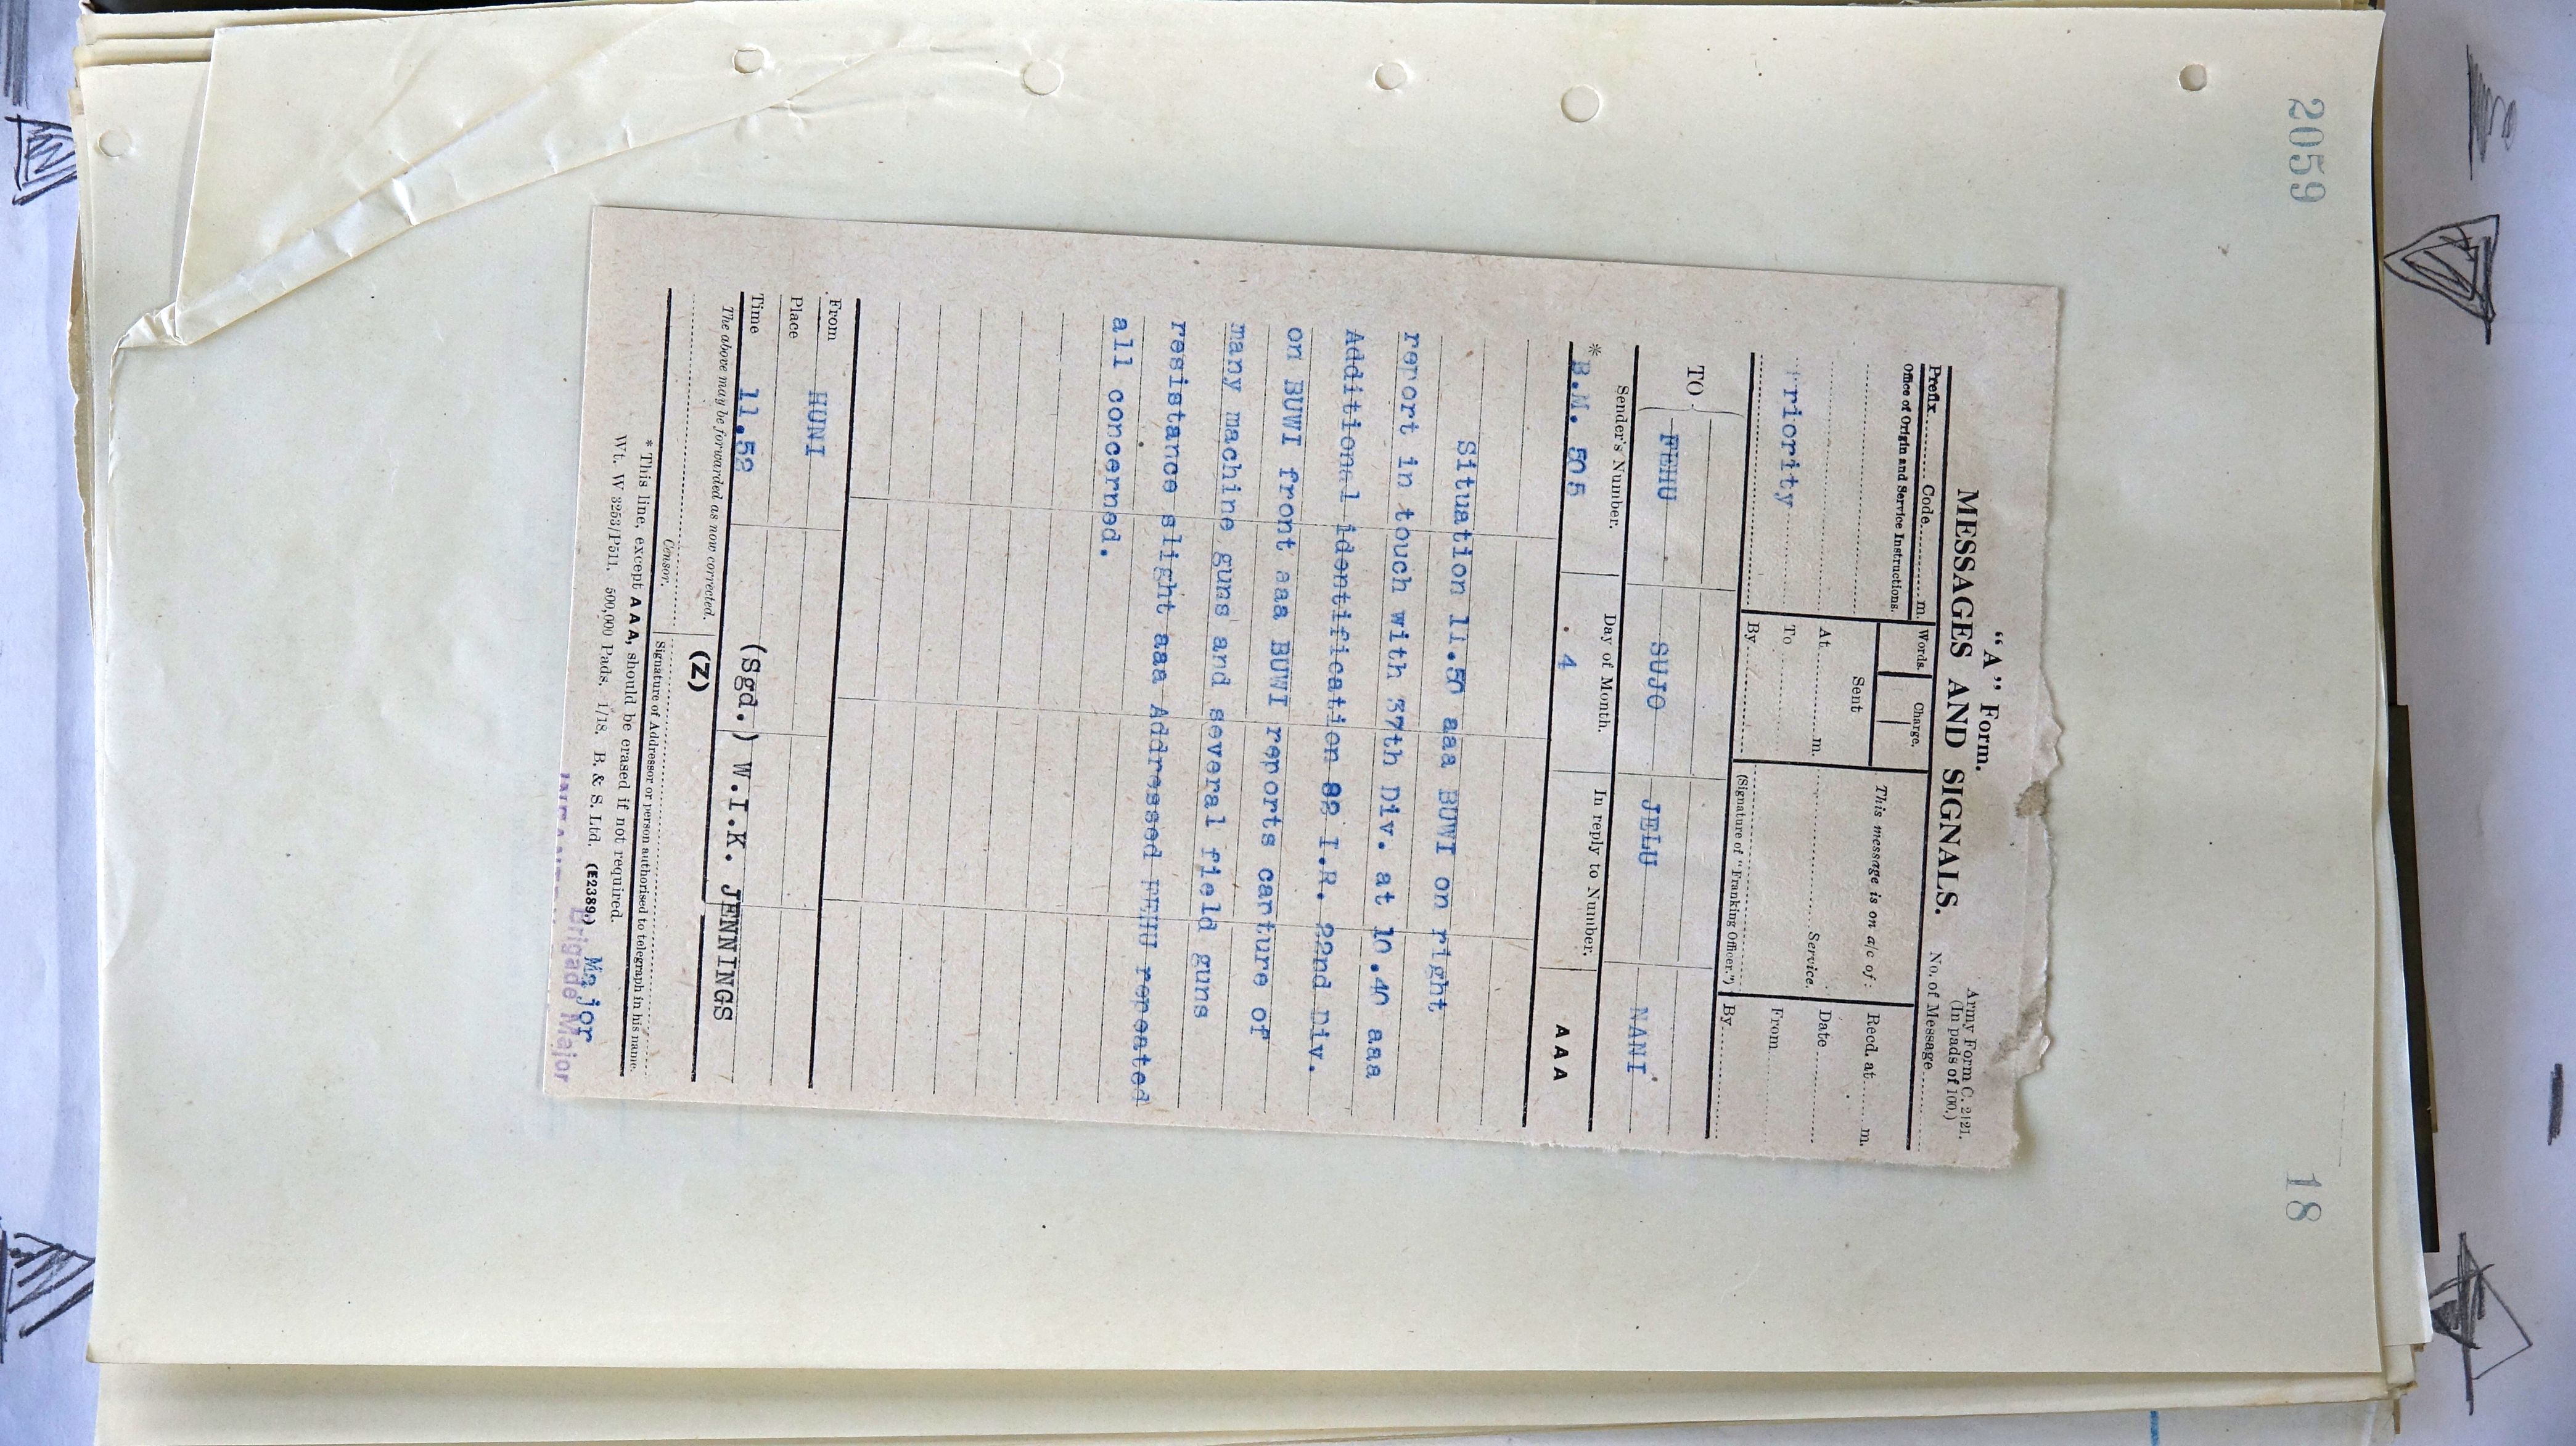 2059
18
"A" Form.
MESSAGES AND SIGNALS.
Army Form C. 2121.
(In pads of 100.)
No. of Message
Prefix Code m.
Words.
Charge.
Office of Origin and Service Instructions.
This message is on a/c of:
Recd. at m.
Sent
At m.
Service.
Date
Priority
To
From
By
(Signature of "Franking Officer.")
By
TO
FEHU
SUJO
JELU
NANI
Sender's Number.
Day of Month.
In reply to Number.
AAA
* B.M. 505
4
Situation 11.50 aaa BUWI on right
report in touch with 37th Div. at 10.40 aaa
Additional identification 82 I.R. 22nd Div.
on BUWI front aaa BUWI reports capture of
many machine guns and several field guns
resistance slight aaa Addressed FEHU repeated
all concerned.
From
HUNI
Place
Time
11.52
(Sgd.) W.I.K. JENNINGS
The above may be forwarded as now corrected.
(Z)
Censor.
Signature of Addressor or person authorised to telegraph in his name.
* This line, except AAA, should be erased if not required.
Wt. W 3253/P511. 500,000 Pads. 1/18. B. & S. Ltd. (E2389.)
Major
Brigade Major